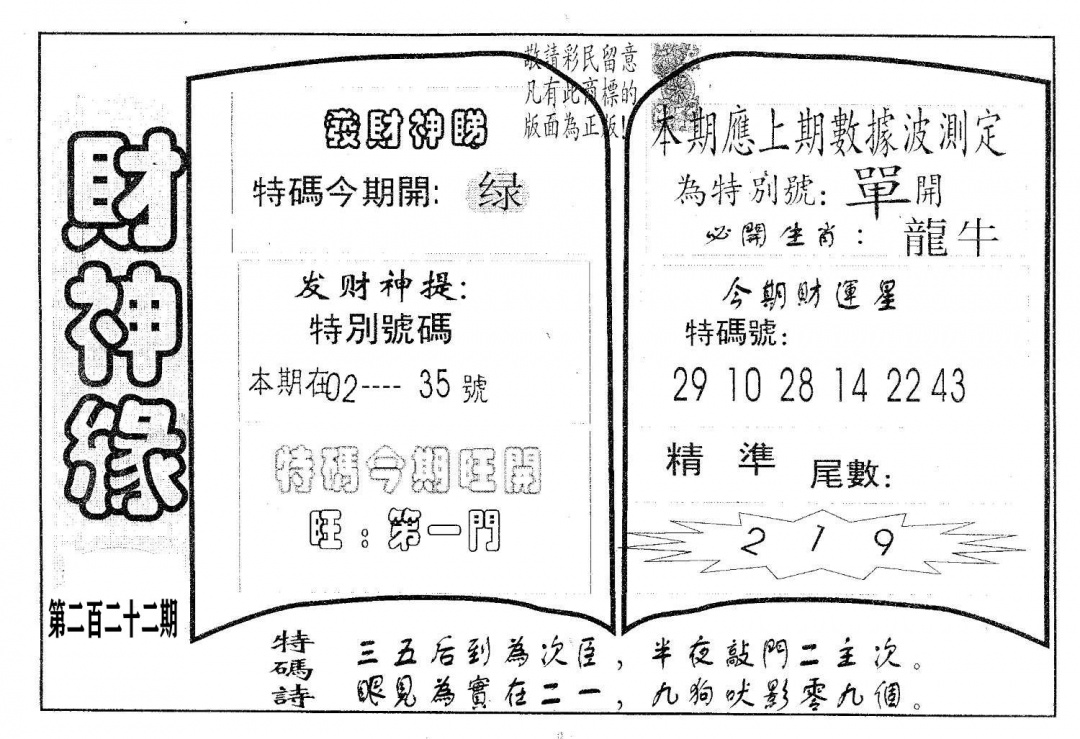 財神緣
第二百二十二期
敬請彩民留意
凡有此商標的
版面為正版!
發財神睇
特碼今期開: 绿
发财神提:
特別號碼
本期在02----35號
特碼今期旺開
旺:第一門
本期應上期數據波測定
為特別號:單開
必開生肖:龍牛
今期財運星
特碼號:
29 10 28 14 22 43
精準 尾數:
2 1 9
特碼詩
三五后到為次臣,半夜敲門二主次。
眼見為實在二一,九狗吠影零九個。